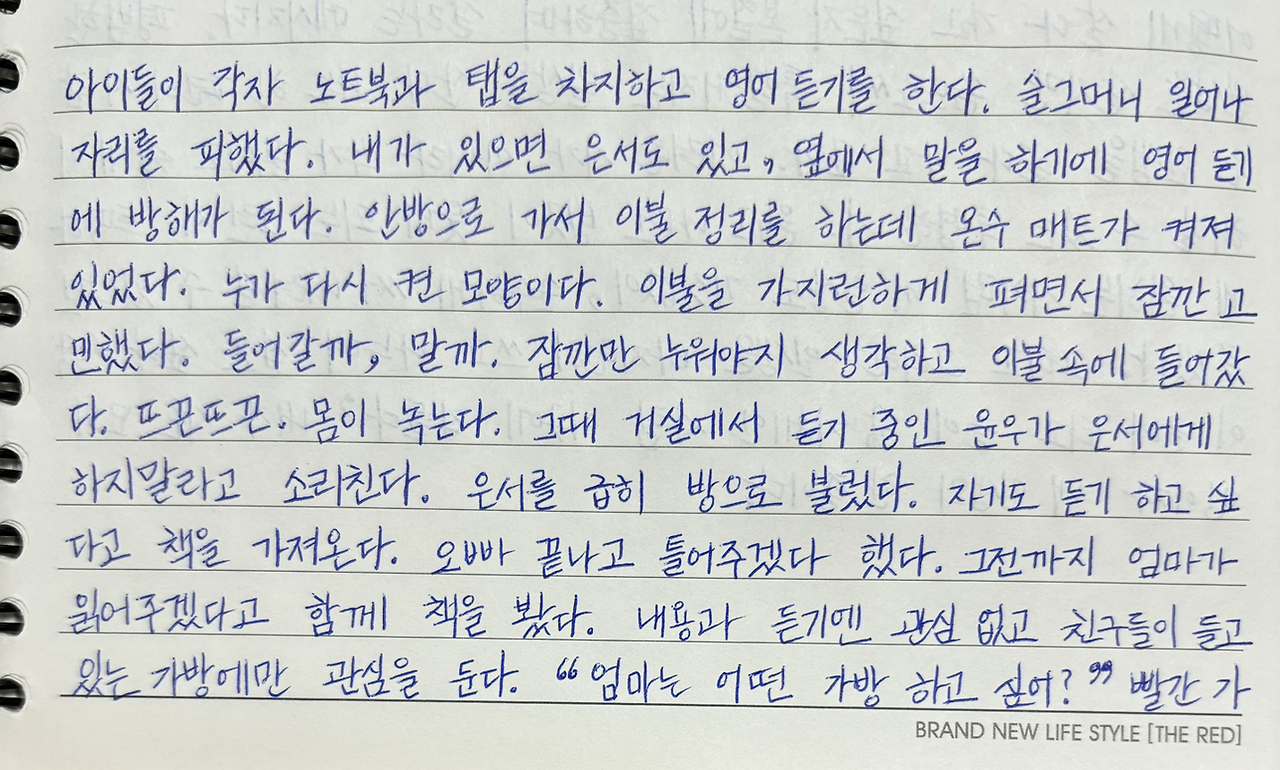 아이들이 각자 노트북과 탭을 차지하고 영어 듣기를 한다. 슬그머니 일어나
자리를 피했다. 내가 있으면 은서도 있고, 옆에서 말을 하기에 영어 듣기
에 방해가 된다. 안방으로 가서 이불 정리를 하는데 온수 매트가 켜져
있었다. 누가 다시 켠 모양이다. 이불을 가지런하게 펴면서 잠깐 고
민했다. 들어갈까, 말까. 잠깐만 누워야지 생각하고 이불 속에 들어갔
다. 뜨끈뜨끈. 몸이 녹는다. 그때 거실에서 듣기 중인 윤우가 은서에게
하지말라고 소리친다. 은서를 급히 방으로 불렀다. 자기도 듣기 하고 싶
다고 책을 가져온다. 오빠 끝나고 틀어주겠다 했다. 그전까지 엄마가
읽어주겠다고 함께 책을 봤다. 내용과 듣기엔 관심 없고 친구들이 들고
있는 가방에만 관심을 둔다. “엄마는 어떤 가방 하고 싶어?” 빨간 가
BRAND NEW LIFE STYLE [THE RED]